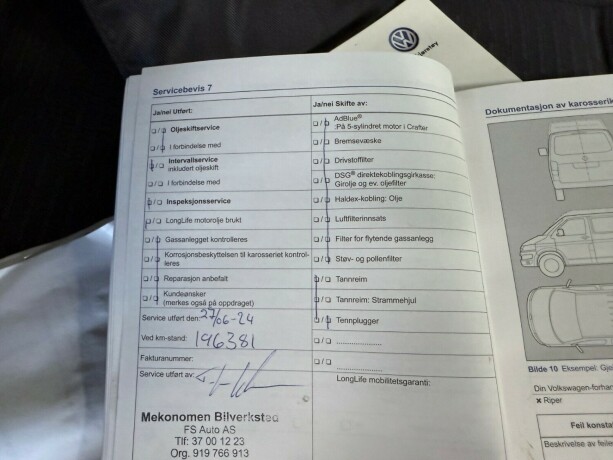 Servicebevis 7
Ja/nei Utført:
Oljeskiftservice
I forbindelse med
Intervallservice
inkludert oljeskift
I forbindelse med
Inspeksjonsservice
LongLife motorolje brukt
Gassanlegget kontrolleres
Korrosjonsbeskyttelsen til karosseriet kontrol-
leres
Reparasjon anbefalt
Kundeønsker
(merkes også på oppdraget)
Service utført den: 27/06-24
Ved km-stand: 196381
Fakturanummer:
Service utført av:
Mekonomen Bilverksted
FS Auto AS
Tlf: 37 00 12 23
Org. 919 766 913
Ja/nei Skifte av:
AdBlue®
:På 5-sylindret motor i Crafter
Bremsevæske
Drivstoffilter
DSG® direktekoblingsgirkasse:
Girolje og ev. oljefilter
Haldex-kobling: Olje
Luftfilterinnsats
Filter for flytende gassanlegg
Støv- og pollenfilter
Tannreim
Tannreim: Strammehjul
Tennplugger
....................
....................
LongLife mobilitetsgaranti:
Dokumentasjon av karosserik
Bilde 10 Eksempel: Gje
Din Volkswagen-forhan
× Riper
Feil konsta
Beskrivelse av feile